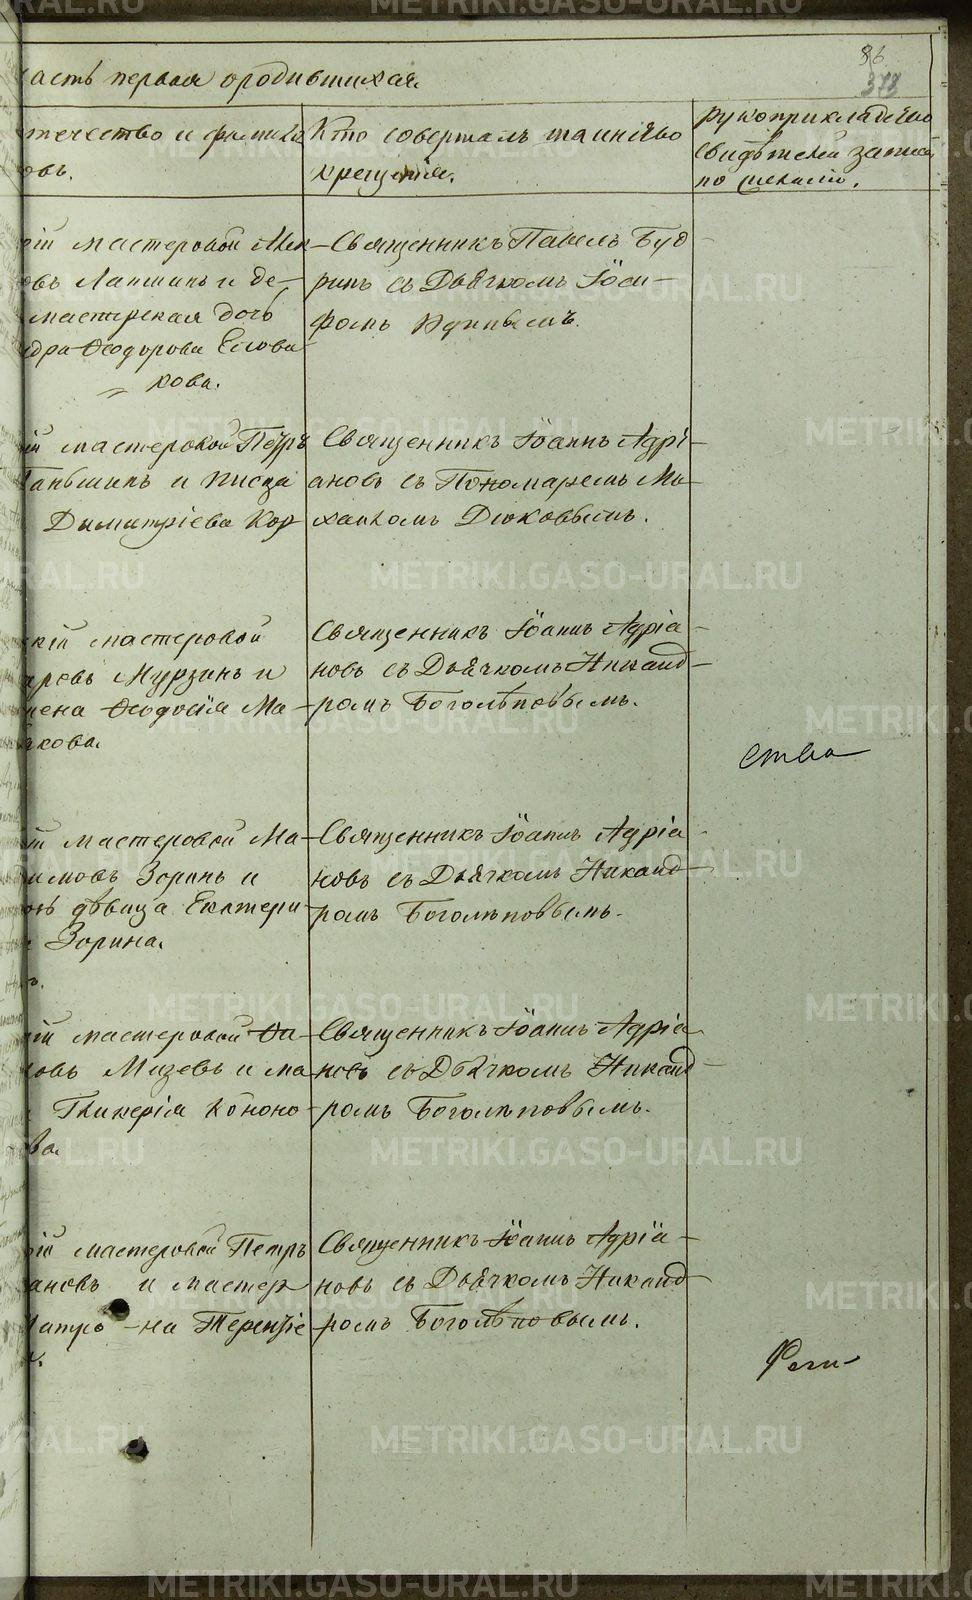 86.
373
асть первая о родившихся.
течество и фамилiя
овъ.
Кто совершалъ таинство
крещенiя.
рукоприкладство
свидѣтелей записи
по желанiю.
мастеровой
овъ Лапшинъ и де–
мастерская дочь
дра Ѳеодорова
кова.
– Священникъ Павелъ Буд
ринъ съ Дьячкомъ Iоси–
фомъ
iй мастеровой Петръ
аньшинъ и писца
Димитрiева Кор
Священникъ Iоаннъ Адрi–
ановъ съ Пономаремъ Ми–
хаиломъ Дюковымъ.
кiй мастеровой
Мурзинъ и
Ѳеодосiя Ма–
кова.
Священникъ Iоаннъ Адрiа–
новъ съ Дьячкомъ Никанд–
ромъ Боголѣповымъ.
ства
iй мастеровой Ма–
имовъ Зоринъ и
дѣвица Екатери–
Зорина.
ъ.
– Священникъ Iоаннъ Адрiа–
новъ съ Дьячкомъ Никанд–
ромъ Боголѣповымъ.
iй мастеровой
ловъ Мизевъ и ма–
Гликерiя Кононо–
ва
– Священникъ Iоаннъ Адрiа
новъ съ Дьячкомъ Никанд–
ромъ Боголѣповымъ.
iй мастеровой Петръ
ановъ и мастер
на Терентiе
Священникъ Iоаннъ Адрiа–
новъ съ Дьячкомъ Никанд–
ромъ Боголѣповымъ.
METRIKI.GASO-URAL.RU